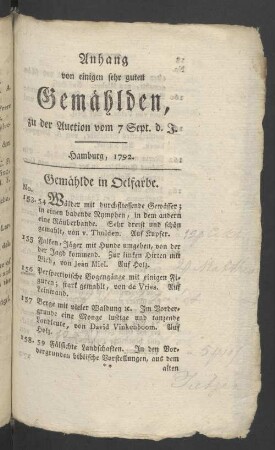 Anhang
von einigen sehr guten
Gemählden,
zu der Auction vom 7 Sept. d. J.
Hamburg, 1792.
Gemählde in Oelfarbe.
No.
153-54 Wälder mit durchfliessende Gewässer;
in einen badende Nymphen, in dem andern
eine Räuberbande. Sehr dreist und schön
gemahlt, von v. Thulden. Auf Kupfer.
155 Falken-Jäger mit Hunde umgeben, von der
der Jagd kommend. Zur linken Hirten mit
Vieh, von Jean Miel. Auf Holz.
156 Perspectivische Bogengänge mit einigen Fi-
guren; stark gemahlt, von de Vries. Auf
Leinwand.
157 Berge mit vieler Waldung ꝛc. Im Vorder-
grunde eine Menge lustige und tanzende
Landleute, von David Vinkenboom. Auf
Holz.
158-59 Landschaften. In den Vor-
dergrunden biblische Vorstellungen, aus dem
** alten